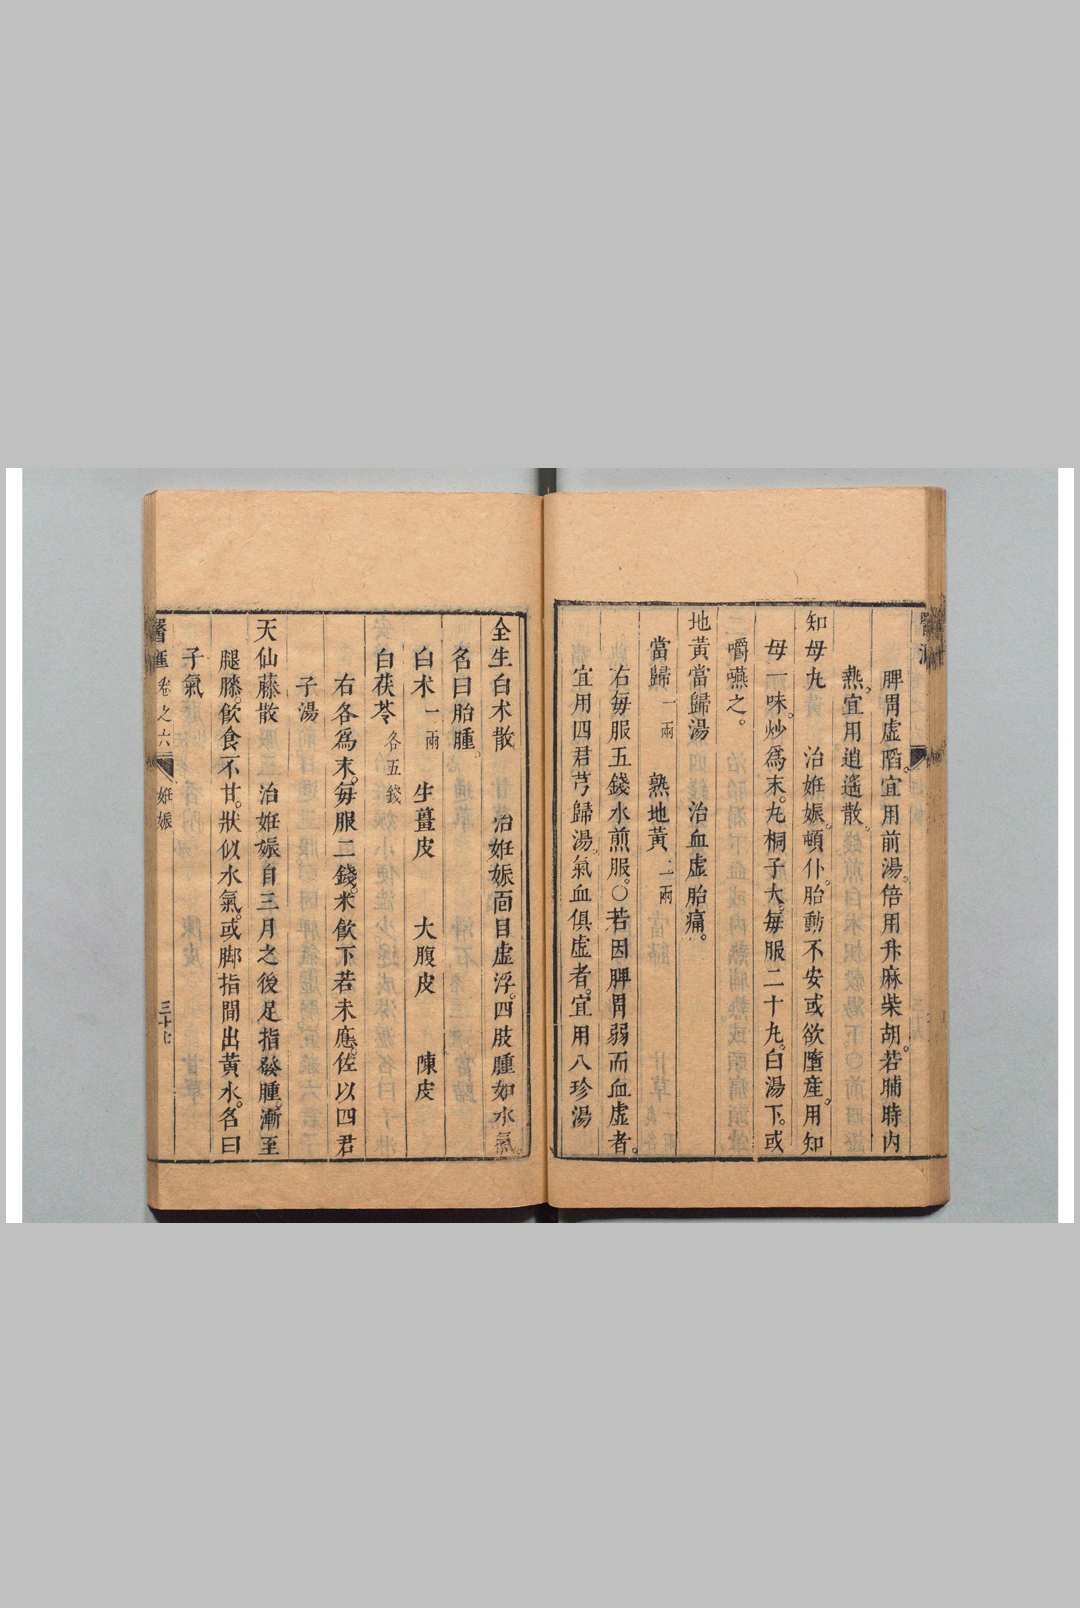 脾胃虛陷。宜用前湯。倍用升麻柴胡。若晡時內
熱。宜用逍遙散。
知母丸　治姙娠。頓仆。胎動不安或欲墮産。用知
母一味。炒爲末。丸桐子大。每服二十丸。白湯下。或
嚼嚥之。
地黃當歸湯　治血虛胎痛。
當歸一兩　熟地黃二兩
右每服五錢水煎服。〇若因脾胃弱而血虛者。
宜用四君芎歸湯。氣血俱虛者。宜用八珍湯
全生白术散　治姙娠面目虛浮。四肢腫如水氣。
名曰胎腫。
白术一兩　生薑皮　大腹皮　陳皮
白茯苓各五錢
右各爲末。每服二錢。米飲下若未應。佐以四君
子湯
天仙藤散　治姙娠自三月之後足指發腫。漸至
腿膝。飲食不甘。狀似水氣。或脚指間出黃水。名曰
子氣
卷之六　姙娠　三十七